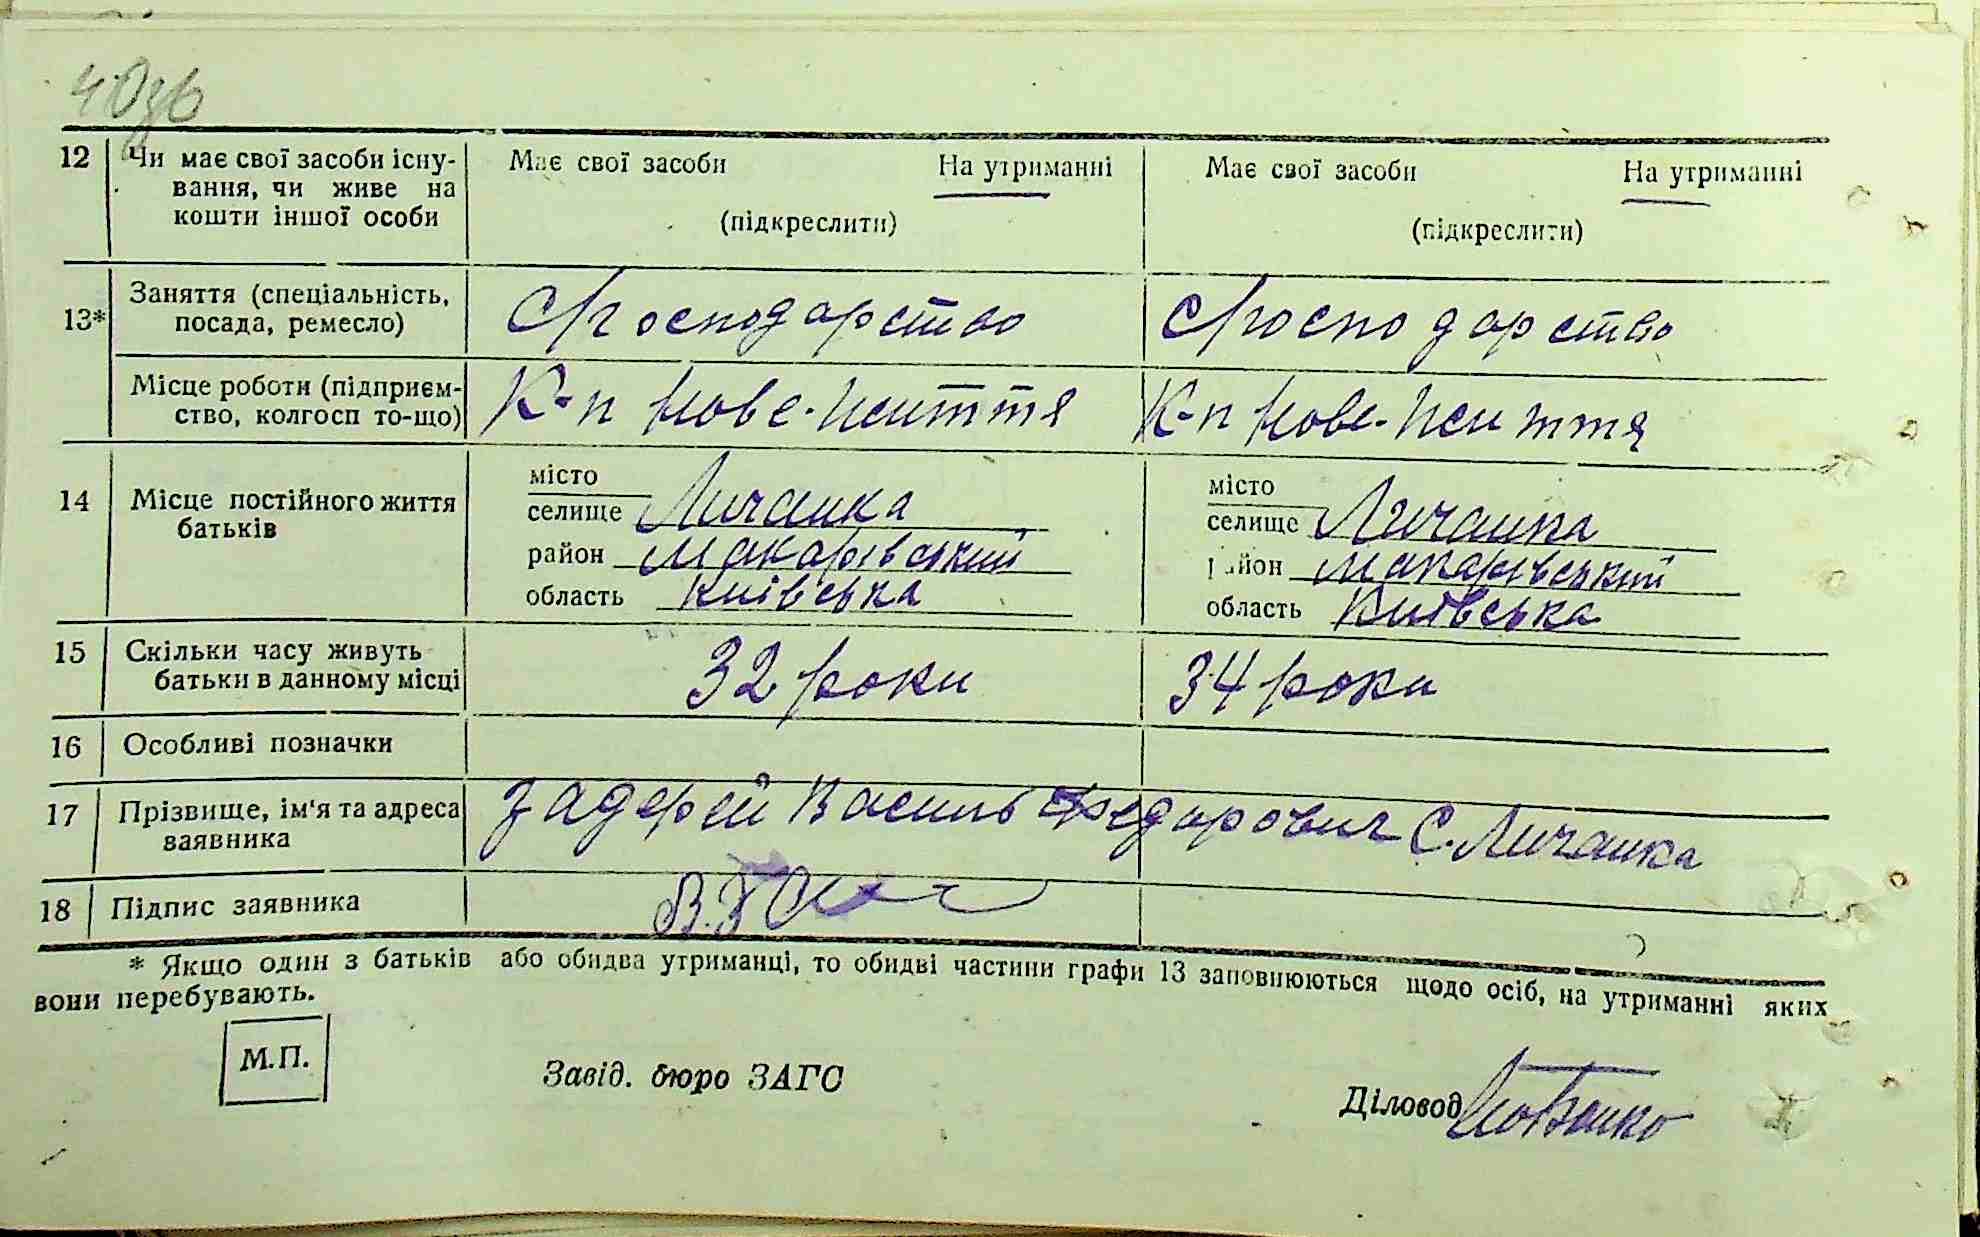 40зв
12 Чи має свої засоби існу-
вання, чи живе на
кошти іншої особи
Має свої засоби На утриманні
(підкреслити)
Має свої засоби На утриманні
(підкреслити)
13* Заняття (спеціальність,
посада, ремесло)
С/господарство
С/господарство
Місце роботи (підприєм-
ство, колгосп то-що)
К-п Нове-Життя
К-п Нове-Життя
14 Місце постійного життя
батьків
місто
селище Личанка
район Макарівський
область Київська
місто
селище Личанка
район Макарівський
область Київська
15 Скільки часу живуть
батьки в данному місці
32 роки
34 роки
16 Особливі позначки
17 Прізвище, ім'я та адреса
заявника
Задерей Василь Федорович С. Личанка
18 Підпис заявника
* Якщо один з батьків або обидва утриманці, то обидві частини графи 13 заповнюються щодо осіб, на утриманні яких
вони перебувають.
М.П.
Завід. бюро ЗАГС
Діловод